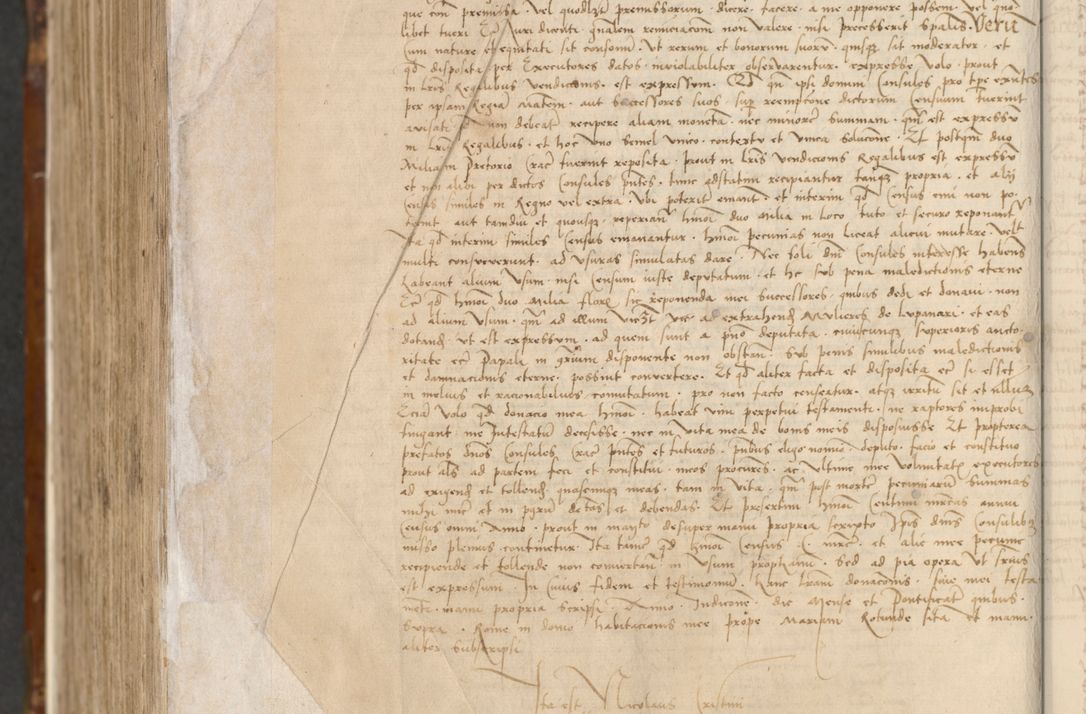 que con premissa · vel quodlzt premissorum · dicere · facere · a me opponere possem vel quo-
libet tueri Et Juri dicenti gnalem renunciacom non valere · nisi precesserit spalis · Verum
Cum nature et equitati sit consonum · Ut rerum et bonorum suorum · quisqz sit moderator · et
qd disposita per Executores datos · inviolabiliter observarentur · expresse Volo · prout
in lris Regalibus Vendicionis · est expressum · Qd qn ipsi domini Consules pro tpe existentes
per ipsam Regia Maiestatem · aut Successores suos · super reempcione dictorum Censuum fuerint
avisati non debeat recipere aliam moneta · nec minorem Summam · qm est expressum
in lris Regalibus · et hoc Uno Semel Unico · contextu et Unica Solucione · Et postqm duo
Milia in Pretorio Crac fuerint reposita · prout in lris Vendicionis Regalibus est expressum
et non alibi per dictos Consules pntes · tunc adstatim recipiantur tanqz propria · et alij
Census similes in Regno vel extra · Ubi poterit emant · et interim qd Census emi non po-
terint aut tamdiu et quousqz · reperian hmoi duo Milia in loco tuto et securo reponant
Ita qd interim similes Census emanantur · hmoi pecunias non liceat alicui mutare · velt
multi consueverunt · ad Usuras simulatas dare · Nec soli dni Consules interesse habens
habeant alium Usum · nisi Censum iuste deputatum · et hc sub pena maledictionis eterne
Et qd hmoi duo Milia floren sic reponenda mei Successores · quibus dedi et donavi · non
ad alium Usum · qm ad illum vicz ad extrahend Mulieres de lupanari · et eas
dotand · ut est expressum · ad quem sunt a pnti deputata · cuiuscunqz superioris aucto-
ritate eciam Papali in premium disponente non obstan · Sub penis similibus maledictionis
et damnacionis eterne · possint convertere · Et qd aliter facta et disposita eciam si esset
in melius et racionabilius comutatum · pro non facto censeatur · atqz irritum sit et nullum
Eciam Volo qd donacio mea hmoi · habeat vim perpetui testamenti · ne raptores improbi
fingant · me Intestatum decessisse · nec in Vita mea de bonis meis disposuisse Et propterea
prefatos dnos Consules Crac pntes et futuros · pnibus eligo nomino · deputo · facio et constituo
prout als ad partem feci et constitui · meos procures · ac Ultime mee Voluntatis executores
ad exigend et tollend · quascunqz meas · tam in Vita · qm post mortem pecuniarum Summas
mihi meis et in pqru detas et debendas · Et presertim hmoi Centum mrcas annui
Census omni Anno · prout in mayto desuper manu propria scripto Ipis dnis Consulibz
misso plenius continetur · Ita tamen qd hmoi Census · C · mrc · et alie mee pecunie
recipiende et tollende non convertan in Usum proprium · Sed ad pia opera Ut supius
est expressum · In Cuius fidem et testimonium · hanc lram donacionis · sive mei testa-
menti · manu propria scripsi · Anno · Indicione · die Mense et Pontificat quibus ·
Supra · Rome in domo habitacionis mee prope Mariam Rotunde sita et manu
aliter subscripsi
Ita est Nicolaus Cristini